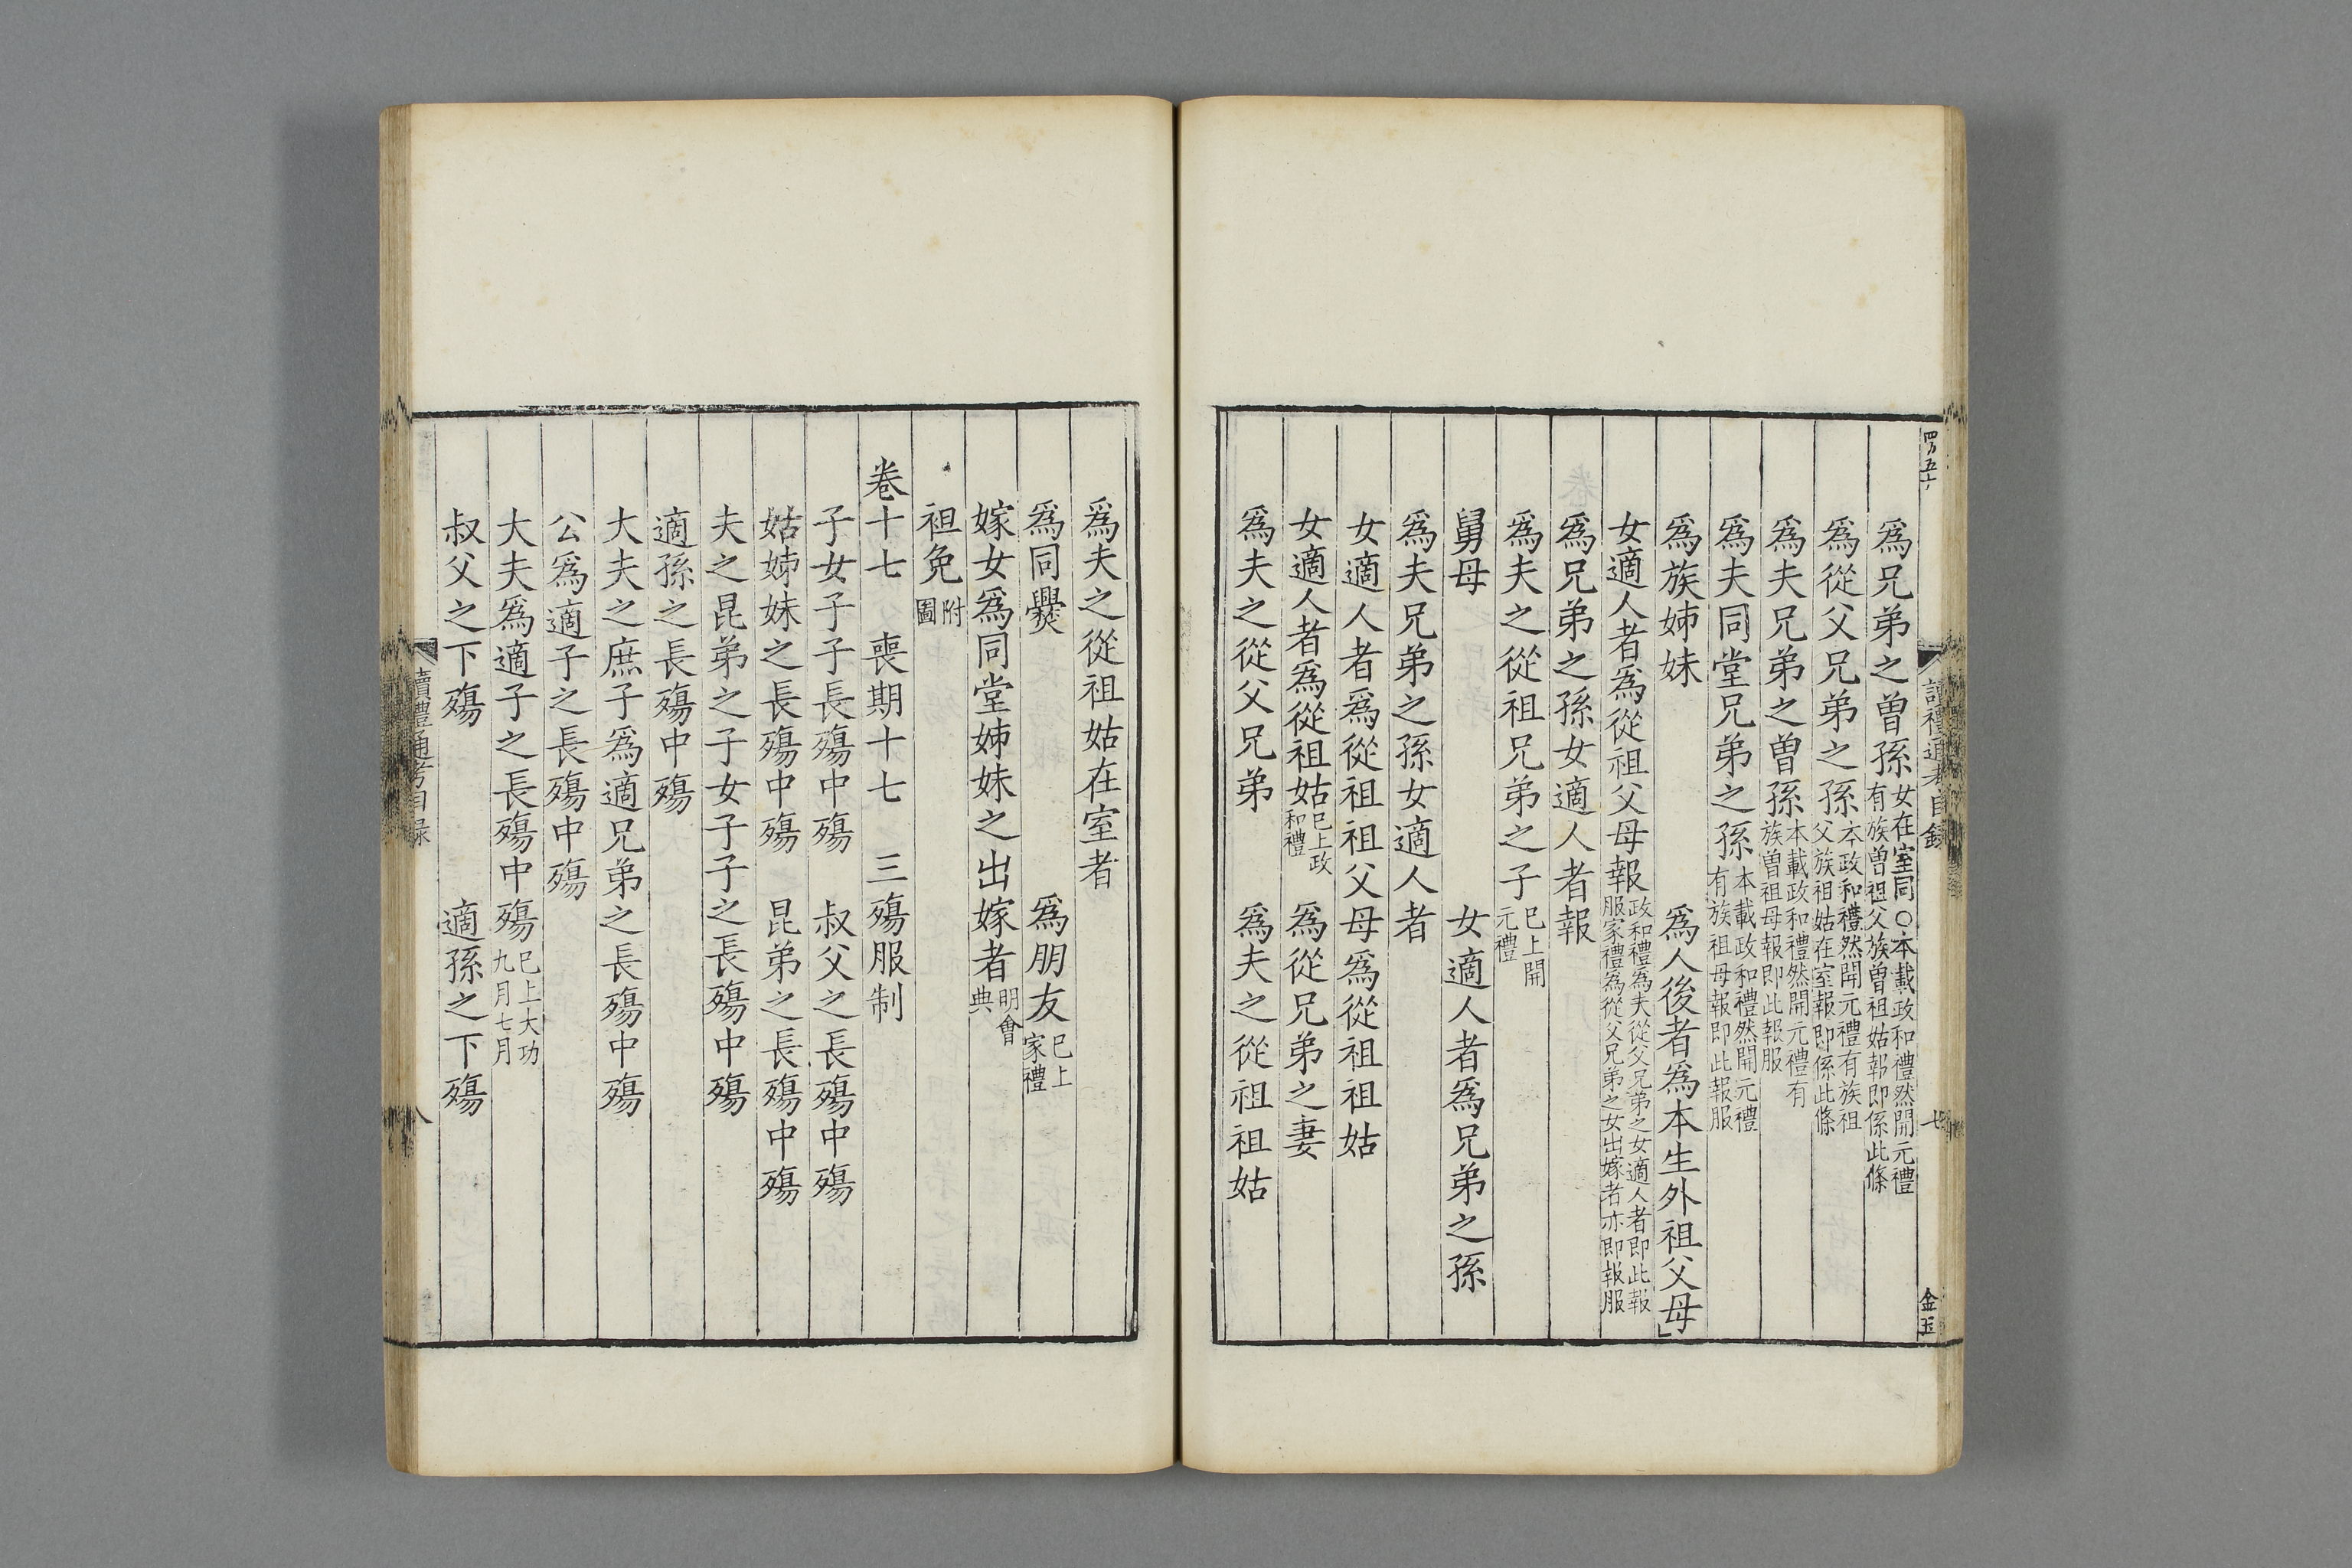 四百五十
讀禮通考目錄
七
金玉
爲兄弟之曾孫女在室同○本載政和禮然開元禮有族曾祖父族曾祖姑報即係此條
爲從父兄弟之孫本政和禮然開元禮有族祖父族祖姑在室報即係此條
爲夫兄弟之曾孫本載政和禮然開元禮有族曾祖母報即此報服
爲夫同堂兄弟之孫本載政和禮然開元禮有族祖母報即此報服
爲族姊妹　爲人後者爲本生外祖父母
女適人者爲從祖父母報政和禮爲夫從父兄弟之女適人者即此報服家禮爲從父兄弟之女出嫁者亦即報服
爲兄弟之孫女適人者報
爲夫之從祖兄弟之子已上開元禮
舅母　女適人者爲兄弟之孫
爲夫兄弟之孫女適人者
女適人者爲從祖祖父母爲從祖祖姑
女適人者爲從祖姑已上政和禮　爲從兄弟之妻
爲夫之從父兄弟　爲夫之從祖祖姑
爲夫之從祖姑在室者
爲同爨　爲朋友已上家禮
嫁女爲同堂姊妹之出嫁者明會典
袒免附圖
卷十七　喪期十七　三殤服制
子女子子長殤中殤　叔父之長殤中殤
姑姊妹之長殤中殤　昆弟之長殤中殤
夫之昆弟之子女子子之長殤中殤
適孫之長殤中殤
大夫之庶子爲適兄弟之長殤中殤
公爲適子之長殤中殤
大夫爲適子之長殤中殤已上大功九月七月
叔父之下殤　適孫之下殤
讀禮通考目錄
八